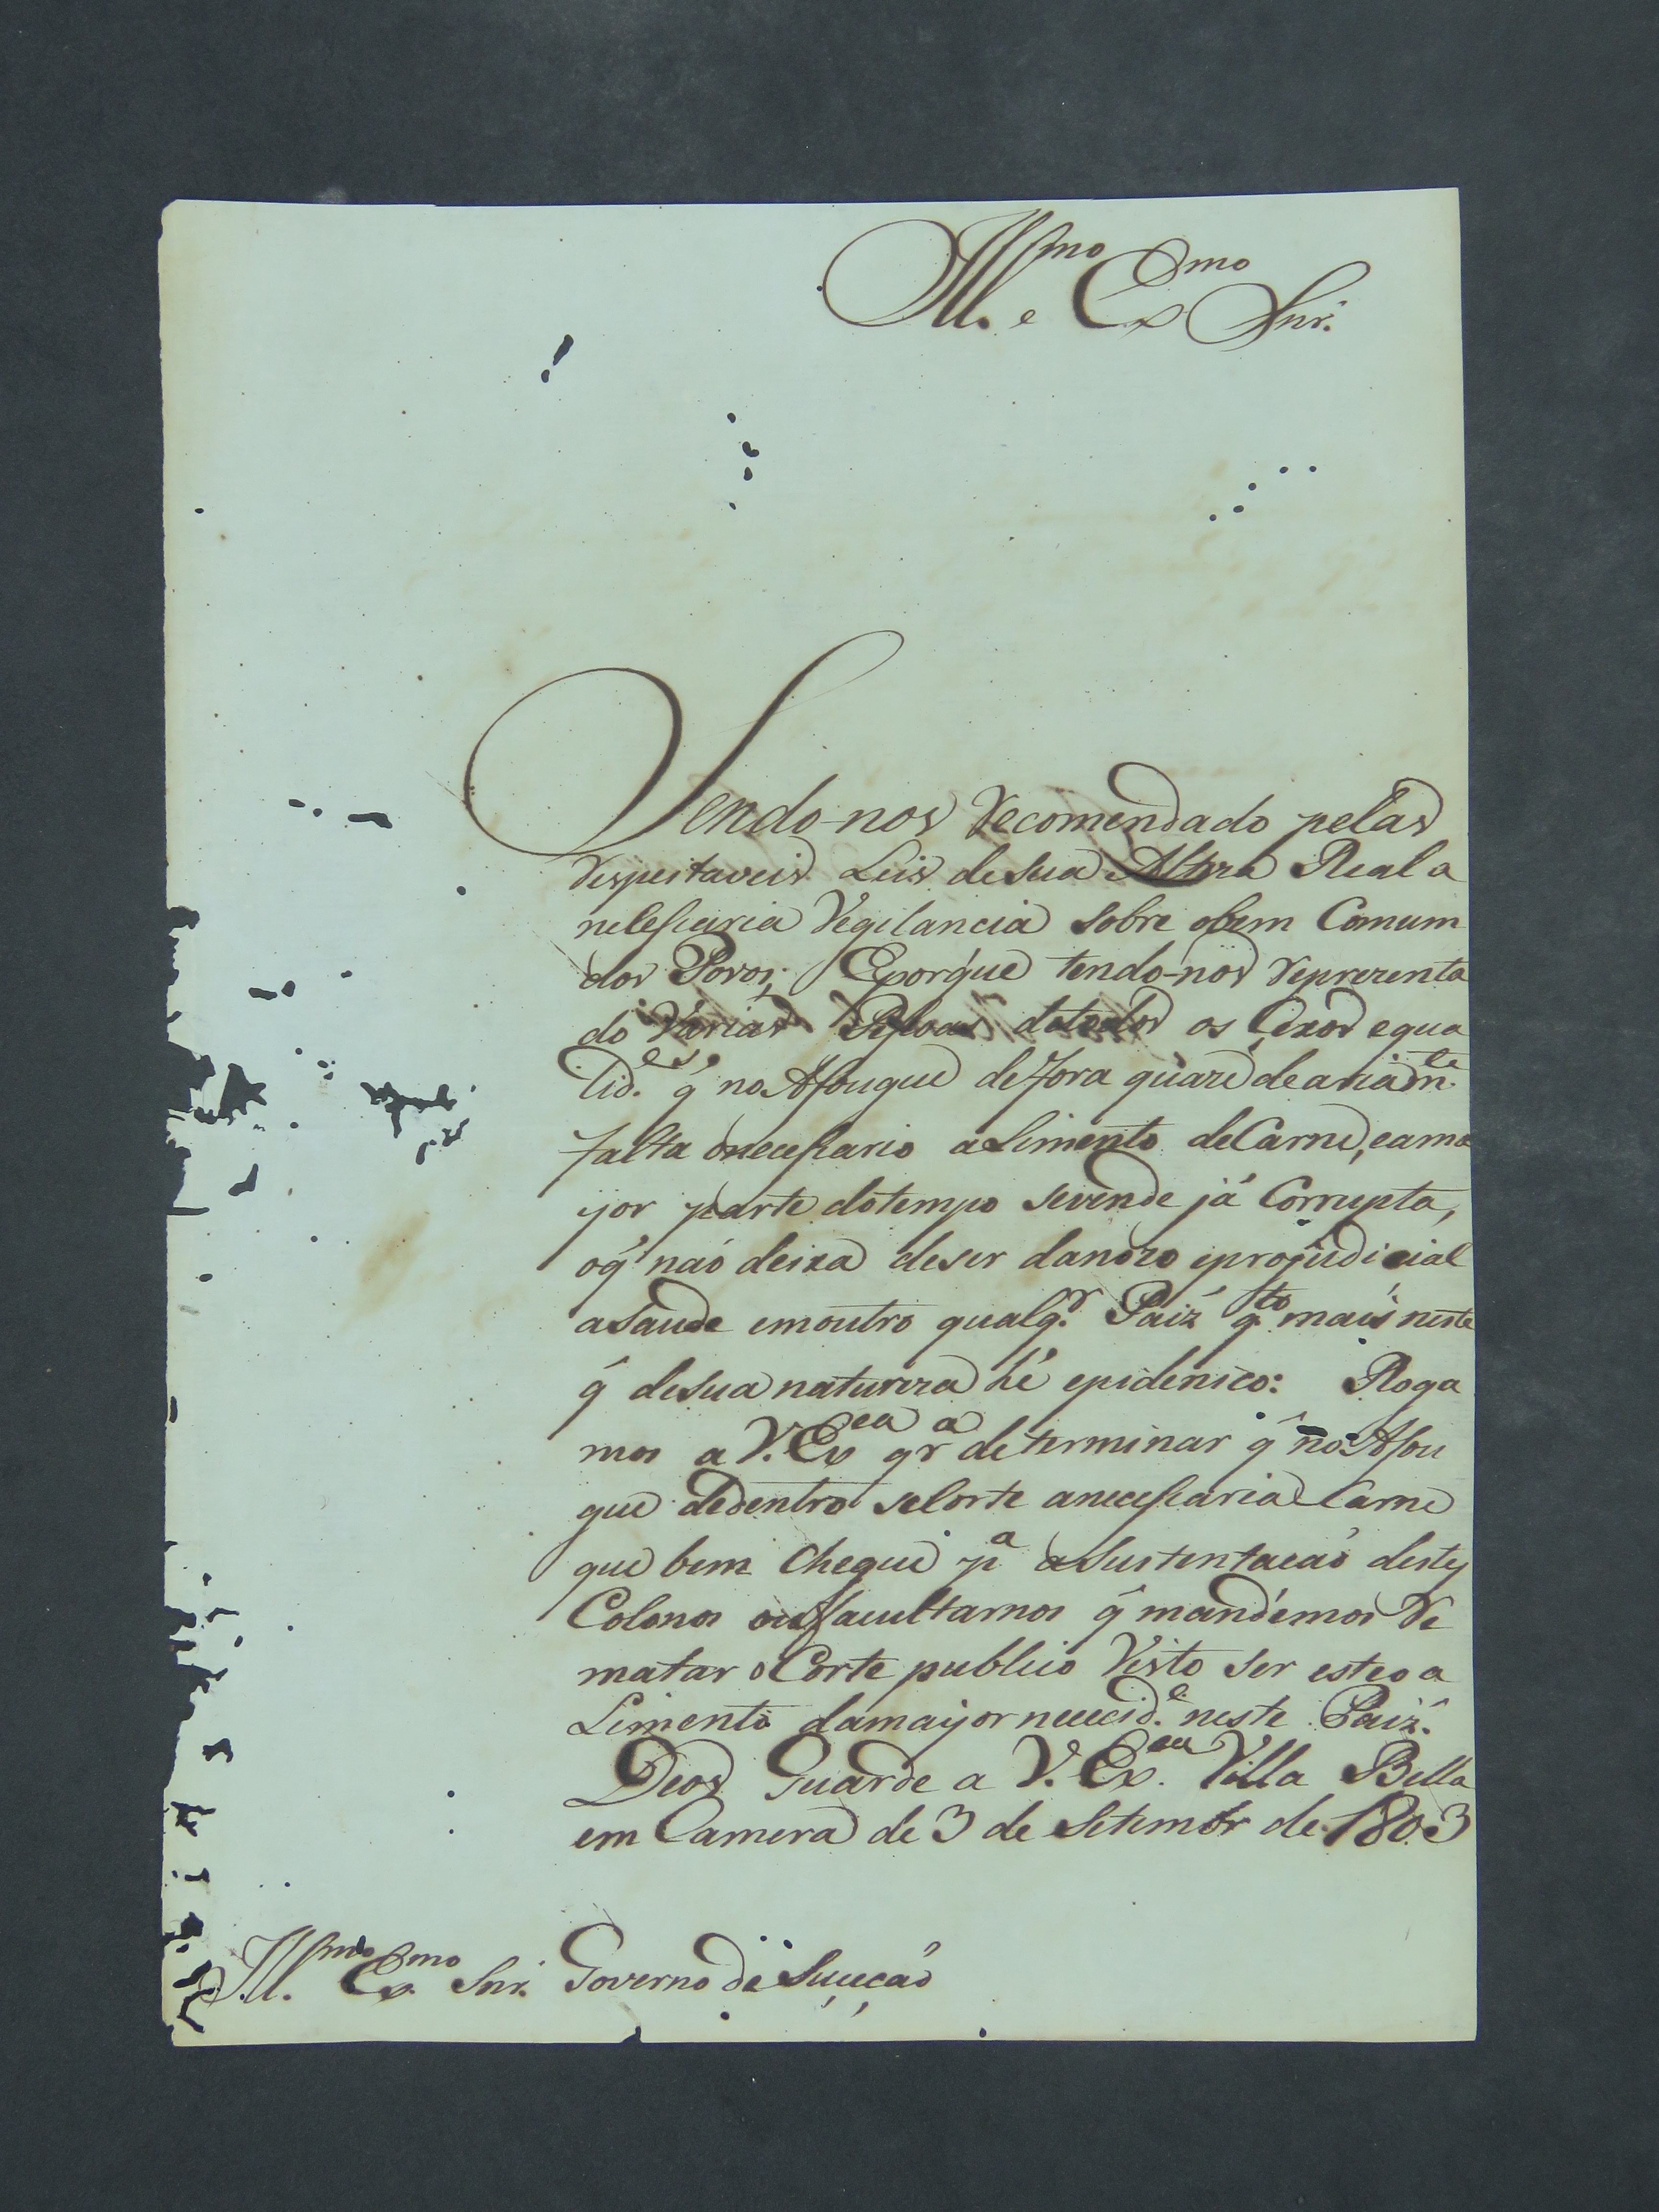 Ill.mo e Ex.mo Snr.
Sendo-nos recomendado pelas
respeitaveis Leis de sua Alteza Real a
necessaria Vegilancia sobre obem Comum
dos Povos; Eporque tendo-nos reprezenta
do Varias Pessoas detodos os Cexos equa
lid.es, q̃ no Asougue defora quaze deariam.te
falta onecessario alimento deCarne, eama
yor parte dotempo sevende já Corrupta,
oq̃ naõ deixa deser danozo eprojudicial
aSaude emoutro qualq.r Paiz q.to mais neste
q̃ desua natureza hé epidenico: Roga
mos a V. Ex.ca q.ra determinar q̃ no Asou
gue dedentro seCorte anecessaria Carne
que bem chegue p.a aSustentacaõ destes
Colonos ou facultarnos q̃ mandémos Re
matar oCorte publico Visto ser esteo a
Limento damayor nececid.e neste Paiz.
Deos Guarde a V. Ex.ca Villa Bella
em Camera de 3 de Setembr de 1803
Ill.mo Ex.mo Snr. Governo de Suçcaõ